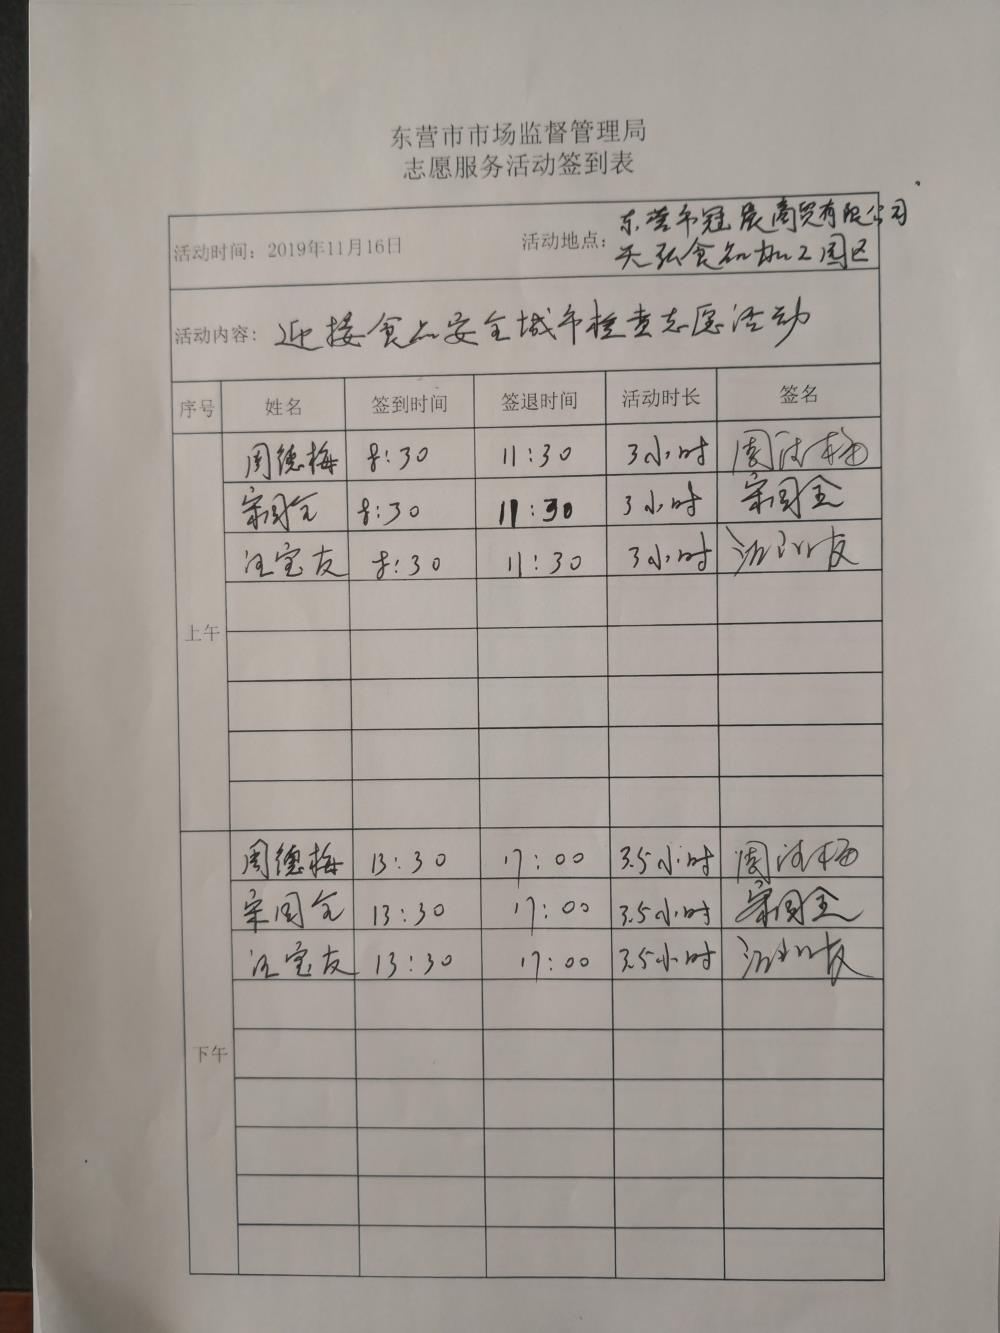 东营市市场监督管理局
志愿服务活动签到表
活动时间：2019年11月16日 活动地点：东营市冠晨商贸有限公司
天弘食品加工园区
活动内容：迎接食品安全城市检查志愿活动
序号 姓名 签到时间 签退时间 活动时长 签名
上午
周德梅 8:30 11:30 3小时 周德梅
宋国全 8:30 11:30 3小时 宋国全
汪宝友 8:30 11:30 3小时 汪宝友
下午
周德梅 13:30 17:00 3.5小时 周德梅
宋国全 13:30 17:00 3.5小时 宋国全
汪宝友 13:30 17:00 3.5小时 汪宝友